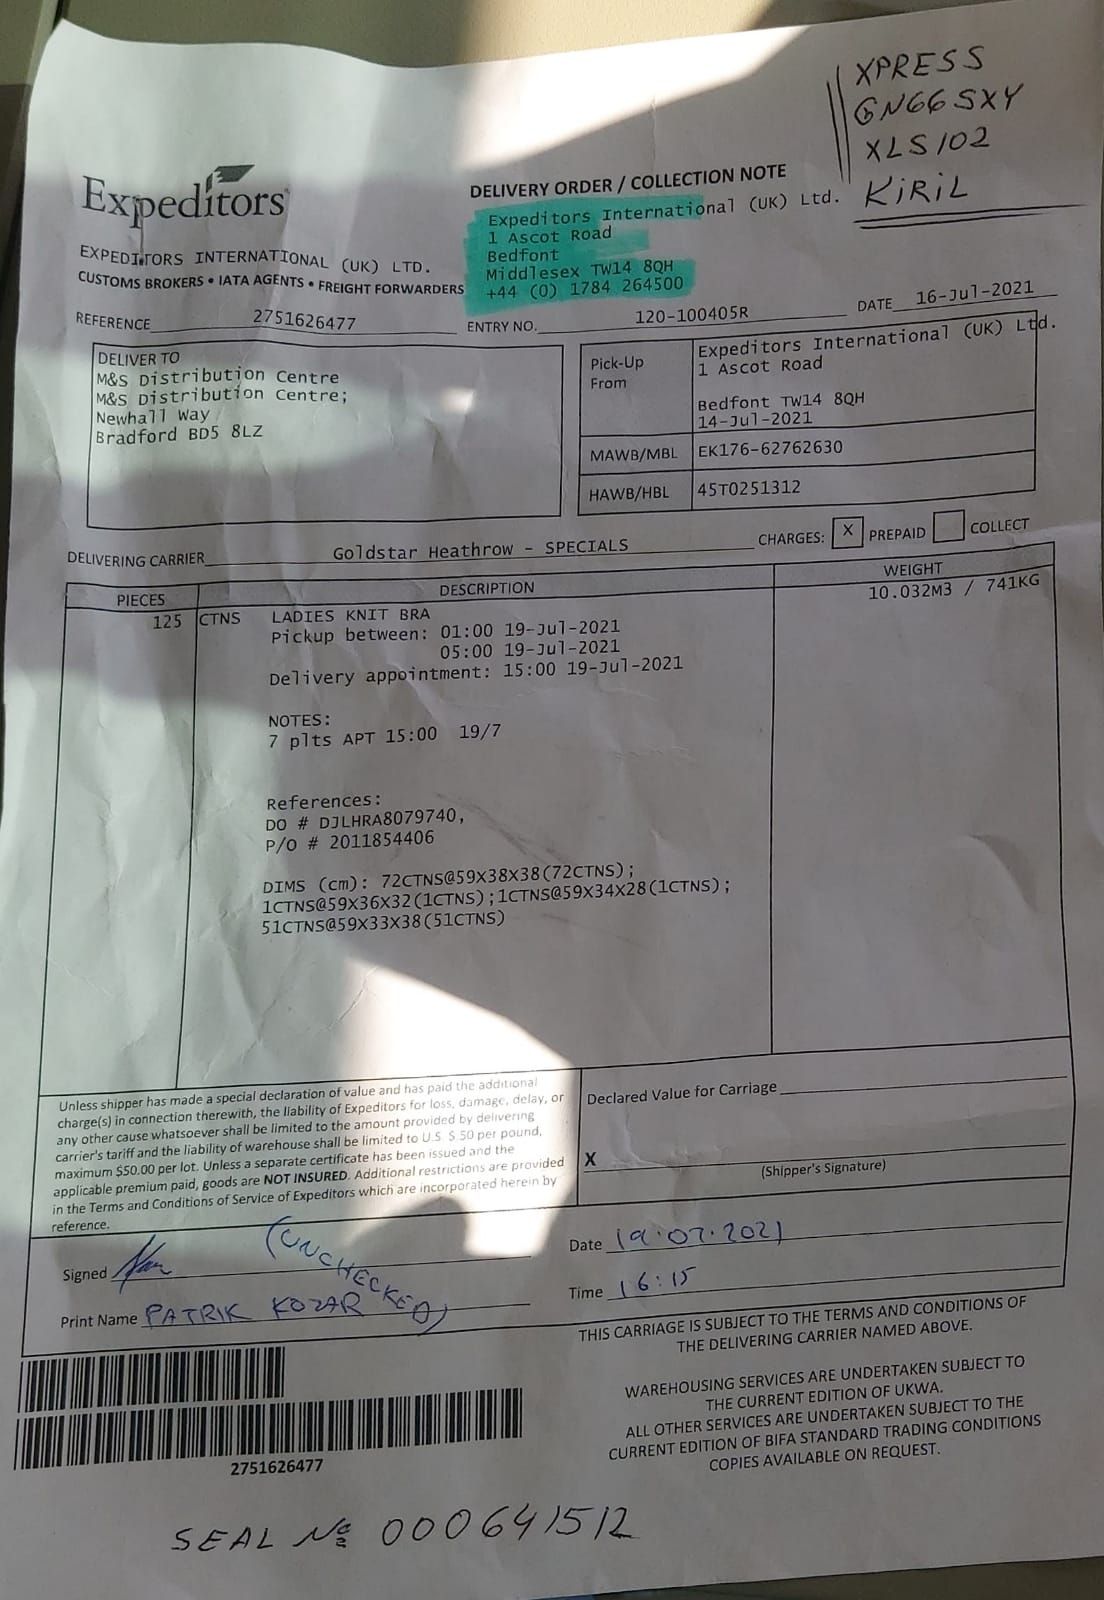 XPRESS
GN66SXY
XLS102
KIRIL
Expeditors
EXPEDITORS INTERNATIONAL (UK) LTD.
CUSTOMS BROKERS • IATA AGENTS • FREIGHT FORWARDERS
DELIVERY ORDER / COLLECTION NOTE
Expeditors International (UK) Ltd.
1 Ascot Road
Bedfont
Middlesex TW14 8QH
+44 (0) 1784 264500
REFERENCE 2751626477 ENTRY NO. 120-100405R DATE 16-Jul-2021
DELIVER TO
M&S Distribution Centre
M&S Distribution Centre;
Newhall Way
Bradford BD5 8LZ
Pick-Up From
Expeditors International (UK) Ltd.
1 Ascot Road
Bedfont TW14 8QH
14-Jul-2021
MAWB/MBL EK176-62762630
HAWB/HBL 45T0251312
DELIVERING CARRIER Goldstar Heathrow - SPECIALS CHARGES: X PREPAID COLLECT
PIECES DESCRIPTION WEIGHT
125 CTNS LADIES KNIT BRA 10.032M3 / 741KG
Pickup between: 01:00 19-Jul-2021
05:00 19-Jul-2021
Delivery appointment: 15:00 19-Jul-2021
NOTES:
7 plts APT 15:00 19/7
References:
DO # DJLHRA8079740,
P/O # 2011854406
DIMS (cm): 72CTNS@59X38X38(72CTNS);
1CTNS@59X36X32(1CTNS);1CTNS@59X34X28(1CTNS);
51CTNS@59X33X38(51CTNS)
Unless shipper has made a special declaration of value and has paid the additional
charge(s) in connection therewith, the liability of Expeditors for loss, damage, delay, or
any other cause whatsoever shall be limited to the amount provided by delivering
carrier's tariff and the liability of warehouse shall be limited to U.S. $.50 per pound,
maximum $50.00 per lot. Unless a separate certificate has been issued and the
applicable premium paid, goods are NOT INSURED. Additional restrictions are provided
in the Terms and Conditions of Service of Expeditors which are incorporated herein by
reference.
Declared Value for Carriage
X
(Shipper's Signature)
Signed
(UNCHECKED)
Print Name PATRIK KOZAR
Date 19.07.2021
Time 16:15
THIS CARRIAGE IS SUBJECT TO THE TERMS AND CONDITIONS OF
THE DELIVERING CARRIER NAMED ABOVE.
WAREHOUSING SERVICES ARE UNDERTAKEN SUBJECT TO
THE CURRENT EDITION OF UKWA.
ALL OTHER SERVICES ARE UNDERTAKEN SUBJECT TO THE
CURRENT EDITION OF BIFA STANDARD TRADING CONDITIONS
COPIES AVAILABLE ON REQUEST.
2751626477
SEAL № 000641512